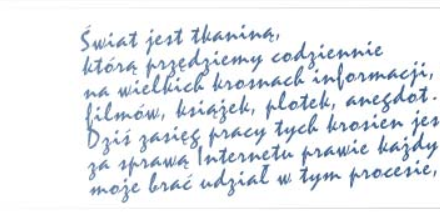 Świat jest tkaniną,
którą przędziemy codziennie
na wielkich krosnach informacji,
filmów, książek, plotek, anegdot.
Dziś zasięg pracy tych krosien jes
za sprawą Internetu prawie każdy
może brać udział w tym procesie,